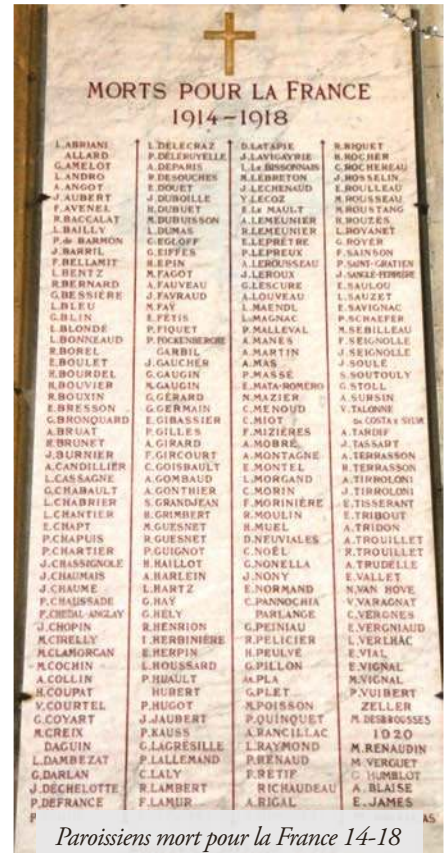 MORTS POUR LA FRANCE
1914-1918
L.ABRIANI
ALLARD
G.AMELOT
L.ANDRO
A.ANGOT
J.AUBERT
F.AVENEL
R.BACCALAT
L.BAILLY
P. de BARMON
J.BARRIL
F.BELLAMIT
L.BENTZ
R.BERNARD
G.BESSIÈRE
L.BLEU
G.BLIN
L.BLONDE
L.BONNEAUD
R.BOREL
E.BOULET
H.BOURDEL
H.BOUVIER
R.BOUXIN
E.BRESSON
G.BRONQUARD
A.BRUAT
H.BRUNET
J.BURNIER
A.CANDILLIER
L.CASSAGNE
G.CHABAULT
L.CHABRIER
L.CHANTIER
E.CHAPT
P.CHAPUIS
P.CHARTIER
J.CHASSIGNOLE
J.CHAUMAIS
J.CHAUME
F.CHAUSSADE
F.CHEDAL-ANGLAY
J.CHOPIN
M.CIRELLY
M.CLAMORGAN
M.COCHIN
A.COLLIN
H.COUPAT
V.COURTEL
G.COYART
M.CREIX
DAGUIN
L.DAMBEZAT
G.DARLAN
J.DÉCHELOTTE
P.DEFRANCE
L.DELECRAZ
P.DELERUYELLE
A.DEPARIS
R.DESOUCHES
E.DOUET
J.DUBOILLE
R.DUBUET
M.DUBUISSON
L.DUMAS
C.EGLOFF
G.EIFFES
H.EPIN
M.FAGOT
A.FAUVEAU
J.FAVRAUD
M.FAY
E.FÉTIS
P.FIQUET
P.FOCKENBERGHE
GARBIL
J.GAUCHER
G.GAUGIN
M.GAUGIN
G.GÉRARD
G.GERMAIN
E.GIBASSIER
P.GILLES
A.GIRARD
F.GIRCOURT
C.GOISBAULT
A.GOMBAUD
A.GONTHIER
S.GRANDJEAN
H.GRIMBERT
M.GUESNET
R.GUESNET
P.GUIGNOT
H.HAILLOT
A.HARLEIN
L.HARTZ
G.HAY
G.HÉLY
R.HENRION
I.HERBINIÈRE
E.HERPIN
L.HOUSSARD
P.HUAULT
HUBERT
P.HUGOT
J.JAUBERT
P.KAUSS
G.LAGRÉSILLE
P.LALLEMAND
C.LALY
R.LAMBERT
F.LAMUR
D.LATAPIE
J.LAVIGAYRIE
L.Le BISSONNAIS
M.LEBRETON
J.LECHENAUD
Y.LECOZ
E.Le MAULT
A.LEMEUNIER
R.LEMEUNIER
E.LEPRÊTRE
P.LEPREUX
A.LEROUSSEAU
J.LEROUX
G.LESCURE
A.LOUVEAU
L.MAENDL
L.MAGNAC
P.MALLEVAL
A.MANES
A.MARTIN
A.MAS
P.MASSÉ
E.MATA-ROMÉRO
N.MAZIER
C.MENOUD
C.MIOT
F.MIZIÈRES
A.MOBRÉ
A.MONTAGNE
E.MONTEL
L.MORGAND
C.MORIN
F.MORINIÈRE
R.MOULIN
H.MUEL
D.NEUVIALES
C.NOËL
G.NONELLA
J.NONY
E.NORMAND
C.PANNOCHIA
PARLANGE
G.PEINIAU
R.PELICIER
H.PEULVÉ
G.PILLON
An.PLA
G.PLET
M.POISSON
P.QUINQUET
A.RANCILLAC
L.RAYMOND
P.RENAUD
F.RETIF
RICHAUDEAU
A.RIGAL
R.RIQUET
H.ROCHER
C.ROCHEREAU
J.ROSSELIN
E.ROULLEAU
M.ROUSSEAU
M.ROUSTANG
R.ROUZÈS
L.ROYANET
G.ROYER
F.SAINSON
P.SAINT-GRATIEN
J.SANGLE-FERRIÈRE
E.SAULOU
L.SAUZET
E.SAVIGNAC
P.SCHAFER
M.SEBILLEAU
F.SEIGNOLLE
J.SEIGNOLLE
J.SOULÉ
S.SOUTOULY
G.STOLL
A.SURSIN
V.TALONNE
Da COSTA E SYLVA
A.TARDIF
J.TASSART
A.TERRASSON
R.TERRASSON
A.TIRROLONI
J.TIRROLONI
E.TISSERANT
E.TRIBOUT
A.TRIDON
A.TROUILLET
R.TROUILLET
A.TRUDELLE
E.VALLET
N.VAN HOVE
V.VARAGNAT
C.VERGNES
E.VERGNIAUD
L.VERLHAC
E.VIAL
E.VIGNAL
M.VIGNAL
P.VUIBERT
ZELLER
M.DESBROSSES
1920
M.RENAUDIN
M.VERGUET
G.HUMBLOT
A.BLAISE
E.JAMES
Paroissiens mort pour la France 14-18